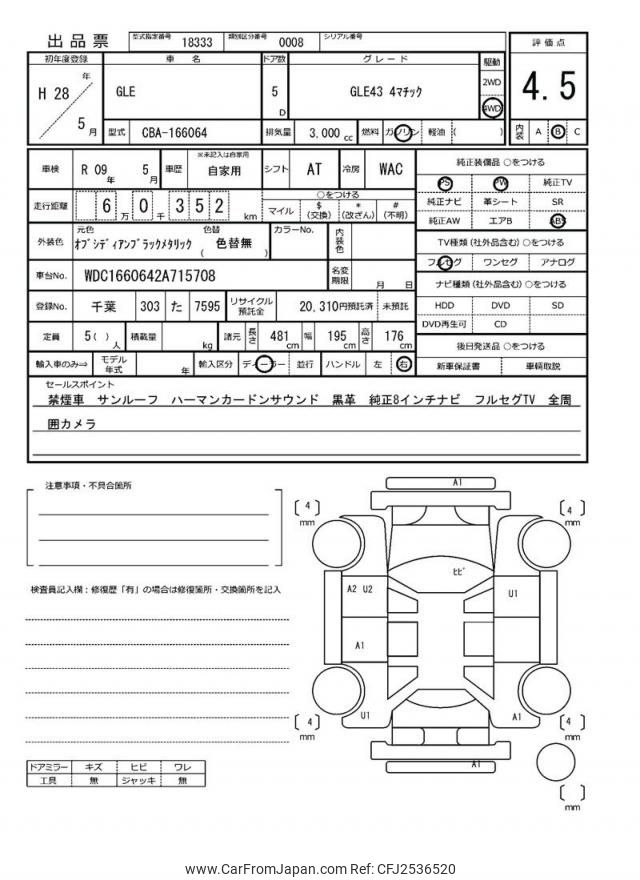 出品票
型式指定番号 18333 類別区分番号 0008 シリアル番号
初年度登録 車名 ドア数 グレード 駆動 評価点
H 28 年 5 月 GLE 5 D GLE43 4マチック 2WD 4WD 4.5
型式 CBA-166064 排気量 3,000 cc 燃料 ガソリン 軽油 ( ) 内装 A B C
車検 R 09 年 5 月 車歴 ※未記入は自家用 自家用 シフト AT 冷房 WAC
純正装備品 ○をつける
PS PW 純正TV
純正ナビ 革シート SR
純正AW エアB ABS
走行距離 6 万 0 千 3 5 2 km
○をつける
マイル $ (交換) * (改ざん) # (不明)
外装色 元色 オブシディアンブラックメタリック 色替 色替無 ( ) カラーNo. 内装色
TV種類 (社外品含む) ○をつける
フルセグ ワンセグ アナログ
車台No. WDC1660642A715708 名変期限 月 日
ナビ種類 (社外品含む) ○をつける
HDD DVD SD
DVD再生可 CD
登録No. 千葉 303 た 7595 リサイクル預託金 20,310円預託済 未預託
定員 5 ( ) 人 積載量 kg 諸元 長さ 481 cm 幅 195 cm 高さ 176 cm
後日発送品 ○をつける
新車保証書 車輌取説
輸入車のみ⇒ モデル年式 年 輸入区分 ディーラー 並行 ハンドル 左 右
セールスポイント
禁煙車 サンルーフ ハーマンカードンサウンド 黒革 純正8インチナビ フルセグTV 全周
囲カメラ
注意事項・不具合箇所
検査員記入欄：修復歴「有」の場合は修復箇所・交換箇所を記入
A1
4 mm
4 mm
ヒビ
A2 U2
U1
A1
U1
A1
4 mm
4 mm
A1
mm
ドアミラー キズ ヒビ ワレ
工具 無 ジャッキ 無
www.CarFromJapan.com Ref: CFJ2536520